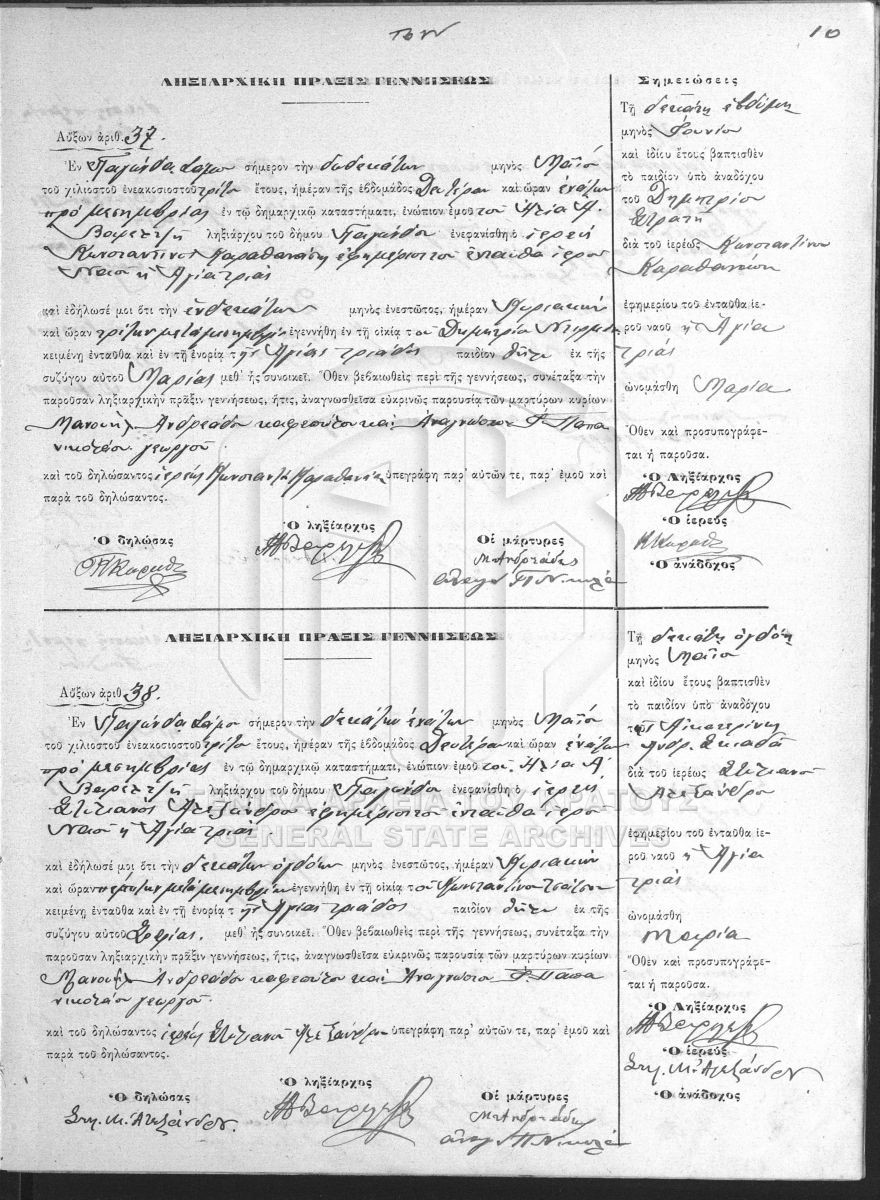 των
10
ΛΗΞΙΑΡΧΙΚΗ ΠΡΑΞΙΣ ΓΕΝΝΗΣΕΩΣ
Αὔξων ἀριθ. 37.
Ἐν Παγώνδα Σάμου σήμερον τὴν δωδεκάτην μηνὸς Μαΐου
τοῦ χιλιοστοῦ ἐνεακοσιοστοῦ τρίτου ἔτους, ἡμέραν τῆς ἑβδομάδος Δευτέραν καὶ ὥραν ἐνάτην
πρὸ μεσημβρίας ἐν τῷ δημαρχικῷ καταστήματι, ἐνώπιον ἐμοῦ του Ηλία Α.
ληξιάρχου τοῦ δήμου Παγώνδου ἐνεφανίσθη ὁ ἱερεὺς
Κωνσταντῖνος Καραθανάσης ἐφημέριος του ἐνταῦθα ἱεροῦ
Ναοῦ ἡ Ἁγία τριάς
καὶ ἐδήλωσέ μοι ὅτι τὴν ἑνδεκάτην μηνὸς ἐνεστῶτος, ἡμέραν Κυριακὴν
καὶ ὥραν τρίτην μετὰ μεσημβρίαν ἐγεννήθη ἐν τῇ οἰκίᾳ του Δημητρίου
κειμένῃ ἐνταῦθα καὶ ἐν τῇ ἐνορίᾳ της Ἁγίας τριάδος παιδίον θῆλυ ἐκ τῆς
συζύγου αὐτοῦ Μαρίας μεθ' ἧς συνοικεῖ. Ὅθεν βεβαιωθεὶς περὶ τῆς γεννήσεως, συνέταξα τὴν
παροῦσαν ληξιαρχικὴν πρᾶξιν γεννήσεως, ἥτις, ἀναγνωσθεῖσα εὐκρινῶς παρουσίᾳ τῶν μαρτύρων κυρίων
Μανουὴλ Ἀνδρεάδου καφεπώλου καὶ Ἀναγνώστου Παπα
νικολάου γεωργοῦ.
καὶ τοῦ δηλώσαντος ἱερέως Κωνσταντ. Καραθανάση ὑπεγράφη παρ' αὐτῶν τε, παρ' ἐμοῦ καὶ
παρὰ τοῦ δηλώσαντος.
Ὁ δηλώσας
Ὁ ληξίαρχος
Οἱ μάρτυρες
Μ. Ἀνδρεάδης
Σημειώσεις
Τῇ δεκάτῃ ἑβδόμῃ
μηνὸς Ἰουνίου
καὶ ἰδίου ἔτους βαπτισθὲν
τὸ παιδίον ὑπὸ ἀναδόχου
τοῦ Δημητρίου
Στρατῆ
διὰ τοῦ ἱερέως Κωνσταντίνου
Καραθανάση
ἐφημερίου τοῦ ἐνταῦθα ἱε-
ροῦ ναοῦ ἡ Ἁγία
τριάς
ὠνομάσθη Μαρία
Ὅθεν καὶ προσυπογράφε-
ται ἡ παροῦσα.
Ὁ Ληξίαρχος
Ὁ ἱερεύς
Ὁ ἀνάδοχος
ΛΗΞΙΑΡΧΙΚΗ ΠΡΑΞΙΣ ΓΕΝΝΗΣΕΩΣ
Αὔξων ἀριθ. 38.
Ἐν Παγώνδα Σάμου σήμερον τὴν δεκάτην ἐνάτην μηνὸς Μαΐου
τοῦ χιλιοστοῦ ἐνεακοσιοστοῦ τρίτου ἔτους, ἡμέραν τῆς ἑβδομάδος Δευτέραν καὶ ὥραν ἐνάτην
πρὸ μεσημβρίας ἐν τῷ δημαρχικῷ καταστήματι, ἐνώπιον ἐμοῦ του Ηλία Α.
ληξιάρχου τοῦ δήμου Παγώνδου ἐνεφανίσθη ὁ ἱερεὺς
Στυλιανὸς Ἀλεξάνδρου ἐφημέριος του ἐνταῦθα ἱεροῦ
Ναοῦ ἡ Ἁγία τριάς
ΓΕΝΙΚΑ ΑΡΧΕΙΑ ΤΟΥ ΚΡΑΤΟΥΣ
GENERAL STATE ARCHIVES
καὶ ἐδήλωσέ μοι ὅτι τὴν δεκάτην ὀγδόην μηνὸς ἐνεστῶτος, ἡμέραν Κυριακὴν
καὶ ὥραν πέμπτην μετὰ μεσημβρίαν ἐγεννήθη ἐν τῇ οἰκίᾳ του Κωνσταντίνου
κειμένῃ ἐνταῦθα καὶ ἐν τῇ ἐνορίᾳ της Ἁγίας τριάδος παιδίον θῆλυ ἐκ τῆς
συζύγου αὐτοῦ μεθ' ἧς συνοικεῖ. Ὅθεν βεβαιωθεὶς περὶ τῆς γεννήσεως, συνέταξα τὴν
παροῦσαν ληξιαρχικὴν πρᾶξιν γεννήσεως, ἥτις, ἀναγνωσθεῖσα εὐκρινῶς παρουσίᾳ τῶν μαρτύρων κυρίων
Μανουὴλ Ἀνδρεάδου καφεπώλου καὶ Ἀναγνώστου Παπα
νικολάου γεωργοῦ.
καὶ τοῦ δηλώσαντος ἱερέως Στυλιανοῦ Ἀλεξάνδρου ὑπεγράφη παρ' αὐτῶν τε, παρ' ἐμοῦ καὶ
παρὰ τοῦ δηλώσαντος.
Ὁ δηλώσας
Στυλ. Μ. Ἀλεξάνδρου.
Ὁ ληξίαρχος
Οἱ μάρτυρες
Μ. Ἀνδρεάδης
Τῇ δεκάτῃ ὀγδόῃ
μηνὸς Μαΐου
καὶ ἰδίου ἔτους βαπτισθὲν
τὸ παιδίον ὑπὸ ἀναδόχου
της Αἰκατερίνης
Ἀνδρ. Σκιαδᾶ
διὰ τοῦ ἱερέως Στυλιανοῦ
Ἀλεξάνδρου
ἐφημερίου τοῦ ἐνταῦθα ἱε-
ροῦ ναοῦ ἡ Ἁγία
τριάς
ὠνομάσθη
Μαρία
Ὅθεν καὶ προσυπογράφε-
ται ἡ παροῦσα.
Ὁ Ληξίαρχος
Ὁ ἱερεύς
Στυλ. Μ. Ἀλεξάνδρου
Ὁ ἀνάδοχος